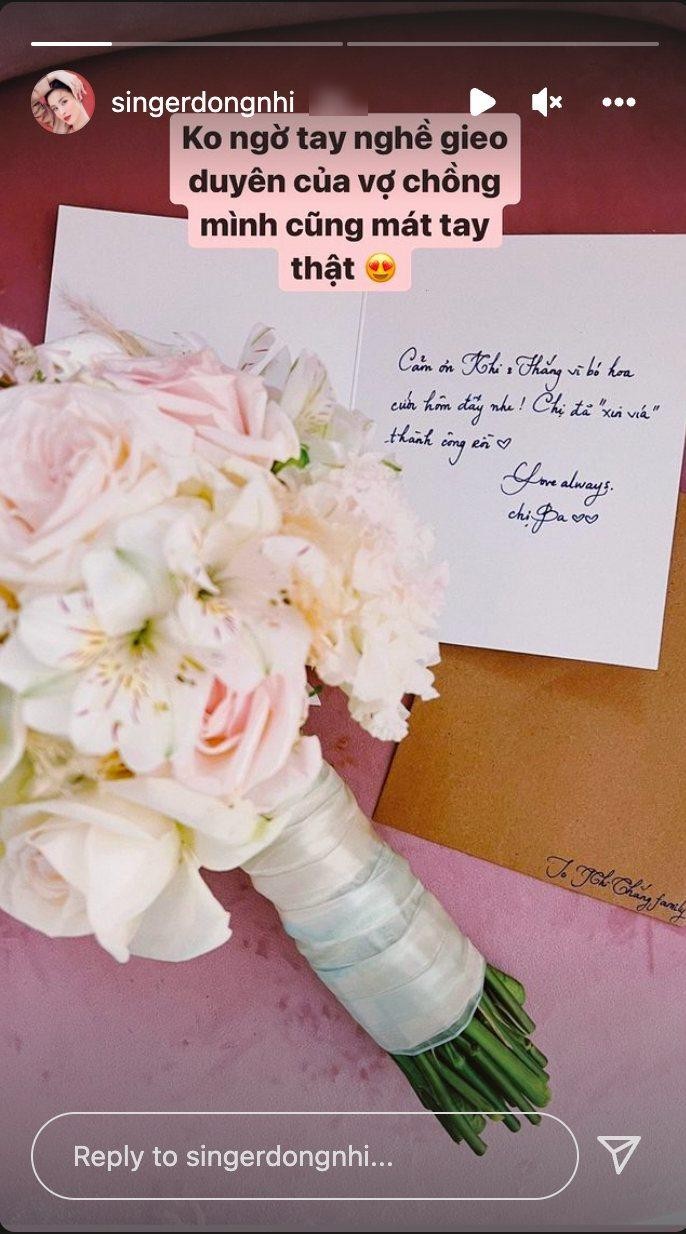 singerdongnhi
Ko ngờ tay nghề gieo
duyên của vợ chồng
mình cũng mát tay
thật 😍
Cảm ơn Nhi & Thắng vì bó hoa
cưới hôm đấy nhe! Chị đã "xin vía"
thành công rồi ♡
Love always.
chị Ba ♡♡
To Nhi-Thắng family
Reply to singerdongnhi...